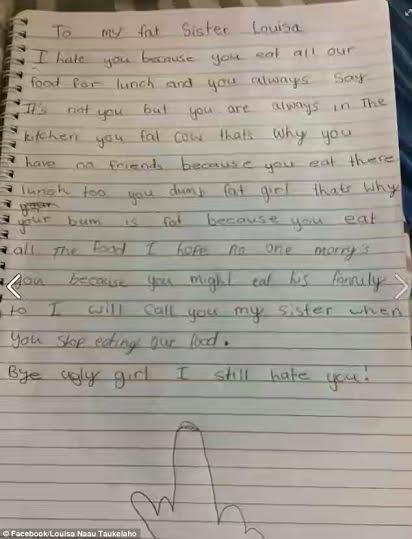 To my fat Sister Louisa
I hate you because you eat all our
food for lunch and you always say
It's not you but you are always in The
kitchen you fat cow thats why you
have no friends because you eat there
lunch too you dump fat girl thats why
your bum is fat because you eat
all The food I hope no one marry's
you because you might eat his family
to I will call you my sister when
you stop eating our food.
Bye ugly girl I still hate you!
© Facebook/Louisa Naau Taukelaho